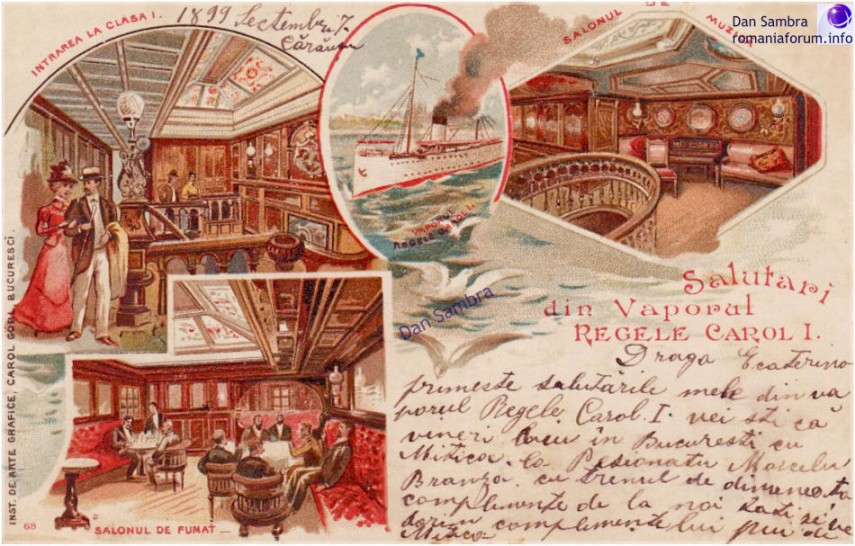 INTRAREA LA CLASA I.
1899 Septembre 7.
DE
SALONUL MUZICĂ
Dan Sambra
romaniaforum.info
VAPORUL
REGELE CAROL I.
Dan Sambra
Salutari
din Vaporul
REGELE CAROL I.
Draga Ecaterino
primeste salutarile mele din va
porul Regele Carol. I. vei sti că
vineri in Bucuresti cu
Mitica. la Marcelu
Branza. cu trenul de dimeneata
complimente de la noi toti
dorim complimentelui
Mitica
SALONUL DE FUMAT
INST. DE ARTE GRAFICE, CAROL GÖBL BUCURESCI.
68